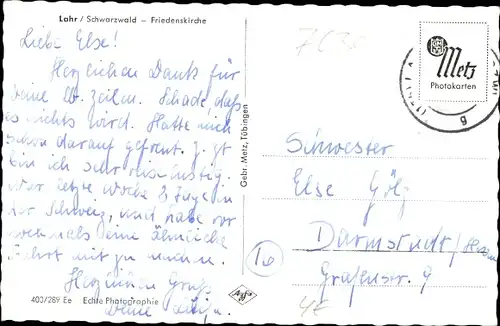 Lahr / Schwarzwald – Friedenskirche
Liebe Else!
Herzlichen Dank für
Deine lb. Zeilen. Schade, daß
es nichts wird. Hatte mich
schon darauf gefreut. Z. Zt.
bin ich sehr reiselustig.
War letzte Woche 3 Tage in
der Schweiz, und habe vor
nochmals eine ähnliche
Fahrt mit zu machen.
Herzlichen Gruß
Deine
403/289 Ee Echte Photographie
Gebr. Metz, Tübingen
Agfa
Metz
Photokarten
Schwester
Else Götz
Darmstadt/Hessen
Grafenstr. 9